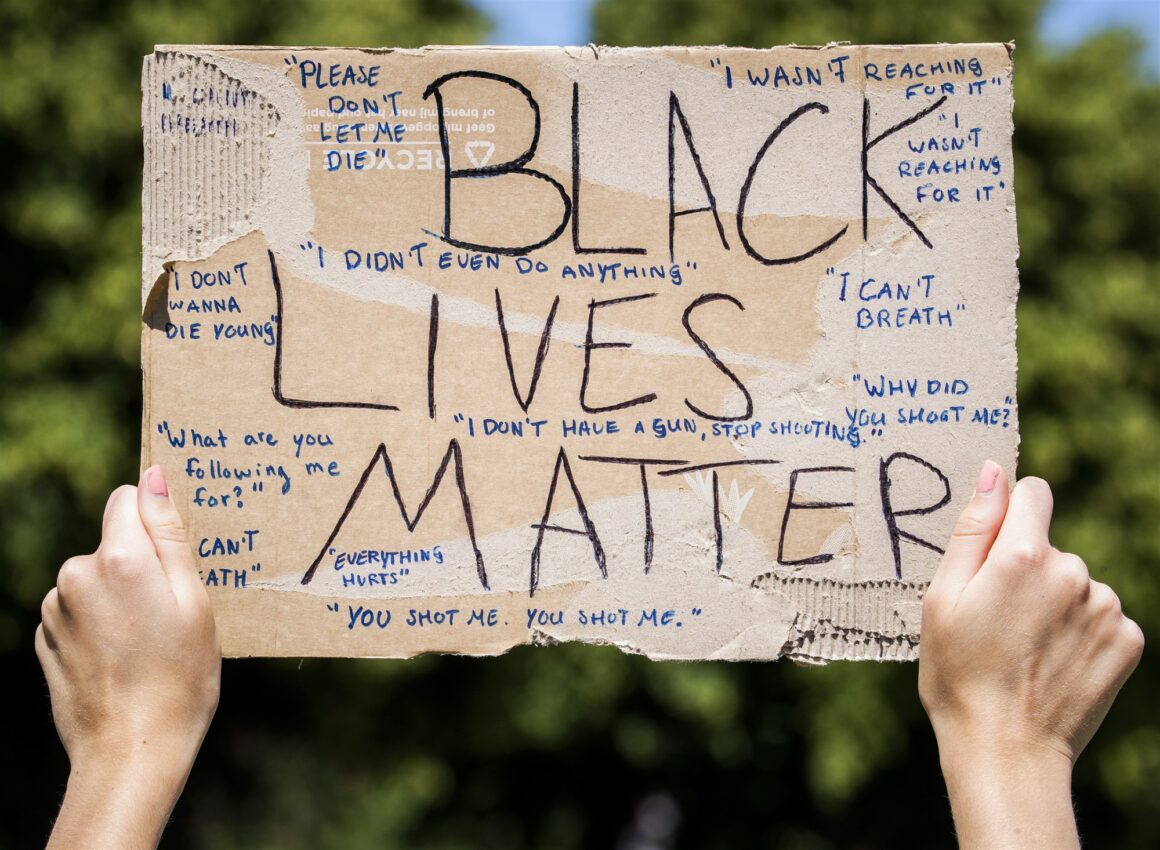 "PLEASE
DON'T
LET ME
DIE"
"I WASN'T REACHING
FOR IT"
"I
WASN'T
REACHING
FOR IT"
BLACK
RECYCLE
of breng mij naar
Geef mij
"I DIDN'T EVEN DO ANYTHING"
"I DON'T
WANNA
DIE YOUNG"
LIVES
"I CAN'T
BREATH"
"WHY DID
YOU SHOOT ME?"
"I DON'T HAVE A GUN, STOP SHOOTING."
"What are you
following me
for?"
MATTER
CAN'T
EATH"
"EVERYTHING
HURTS"
"YOU SHOT ME. YOU SHOT ME."